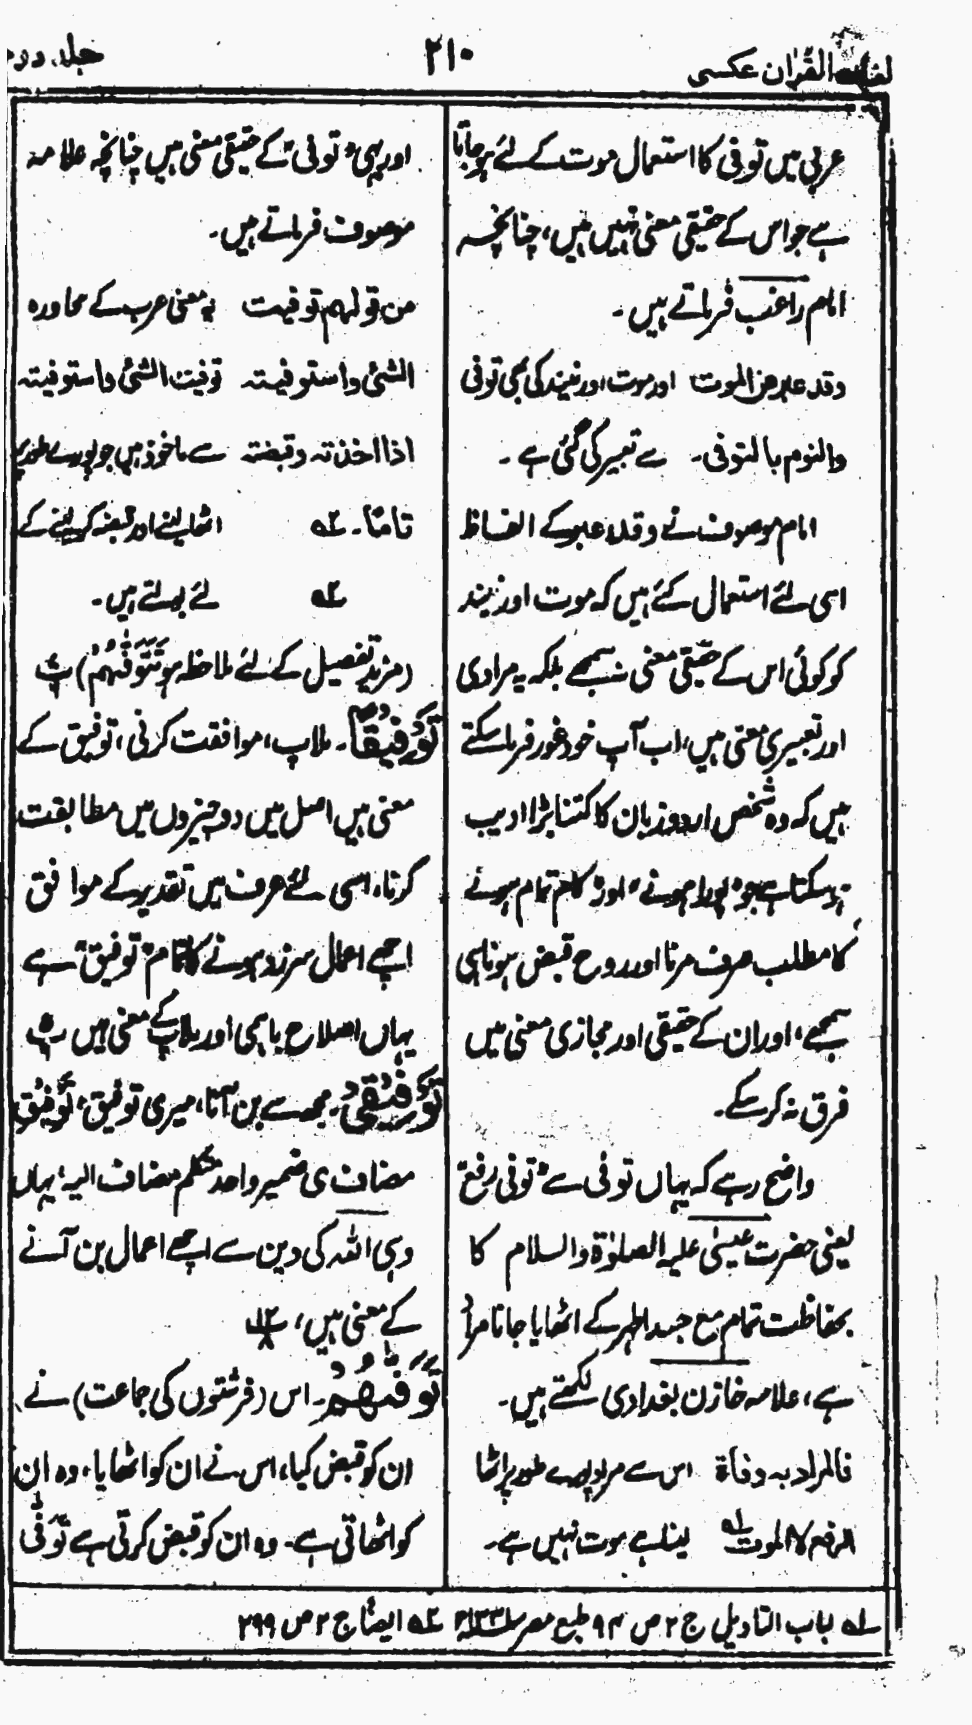 لغات القرآن عکسی
۲۱۰
جلد دوم
عربی میں توفی کا استعمال موت کے لئے ہو جاتا
ہے جو اس کے حقیقی معنی نہیں ہیں، چنانچہ
امام راغب فرماتے ہیں۔
وقد عبر عن الموت اور موت اور نیند کی بھی توفی
والنوم بالتوفی۔ سے تعبیر کی گئی ہے۔
امام موصوف نے وقد عبر کے الفاظ
اسی لئے استعمال کئے ہیں کہ موت اور نیند
کو کوئی اس کے حقیقی معنی نہ سمجھے بلکہ یہ مرادی
اور تعبیری معنی ہیں، اب آپ خود غور فرما سکتے
ہیں کہ وہ شخص اردو زبان کا کتنا بڑا ادیب
ہو سکتا ہے جو "پورا ہونے" اور "کام تمام ہونے"
کا مطلب صرف مرنا اور روح قبض ہونا ہی
سمجھے، اور ان کے حقیقی اور مجازی معنی میں
فرق نہ کر سکے۔
واضح رہے کہ یہاں توفی سے "توفی رفع"
یعنی حضرت عیسیٰ علیہ الصلوٰۃ والسلام کا
بحفاظت تمام مع جسد اطہر کے اٹھایا جانا مراد
ہے، علامہ خازن بغدادی لکھتے ہیں۔
فالمراد بہ وفاۃ اس سے مراد پورے طور پر اٹھا
الرفع لا الموت لہ لینا ہے موت نہیں ہے۔
اور یہی "توفی" کے حقیقی معنی ہیں چنانچہ علامہ
موصوف فرماتے ہیں۔
من قولہم توفیت یہ معنی عرب کے محاورہ
الشئ واستوفیتہ توفیت الشئ واستوفیتہ
اذا اخذتہ وقبضتہ سے ماخوذ ہیں جو پورے طور پر
تامّاً۔ ۲ہ اٹھا لینے اور قبضہ کر لینے کے
۲ہ لئے بولتے ہیں۔
(مزید تفصیل کے لئے ملاحظہ ہو تَتَوَفّٰهُمْ)
تَوْفِيْقًا۔ ملاپ، موافقت کرنی، توفیق کے
معنی ہیں اصل میں دو چیزوں میں مطابقت
کرنا، اسی لئے عرف میں تقدیر کے موافق
اچھے اعمال سرزد ہونے کا نام "توفیق" ہے
یہاں اصلاح باہمی اور ملاپ کے معنی ہیں
تَوْفِيْقِيْ۔ مجھ سے بن آنا، میری توفیق، تَوْفِيْقِ
مضاف ی ضمیر واحد متکلم مضاف الیہ، یہاں
وہی اللہ کی دین سے اچھے اعمال بن آنے
کے معنی ہیں،
تَوَفّٰهُمْ۔ اس (فرشتوں کی جماعت) نے
ان کو قبض کیا، اس نے ان کو اٹھایا، وہ ان
کو اٹھاتی ہے۔ وہ ان کو قبض کرتی ہے تَوَفّٰى
لہ باب التاویل ج ۲ ص ۹۴ طبع مصر ۲ہ ایضاً ج ۲ ص ۲۹۹